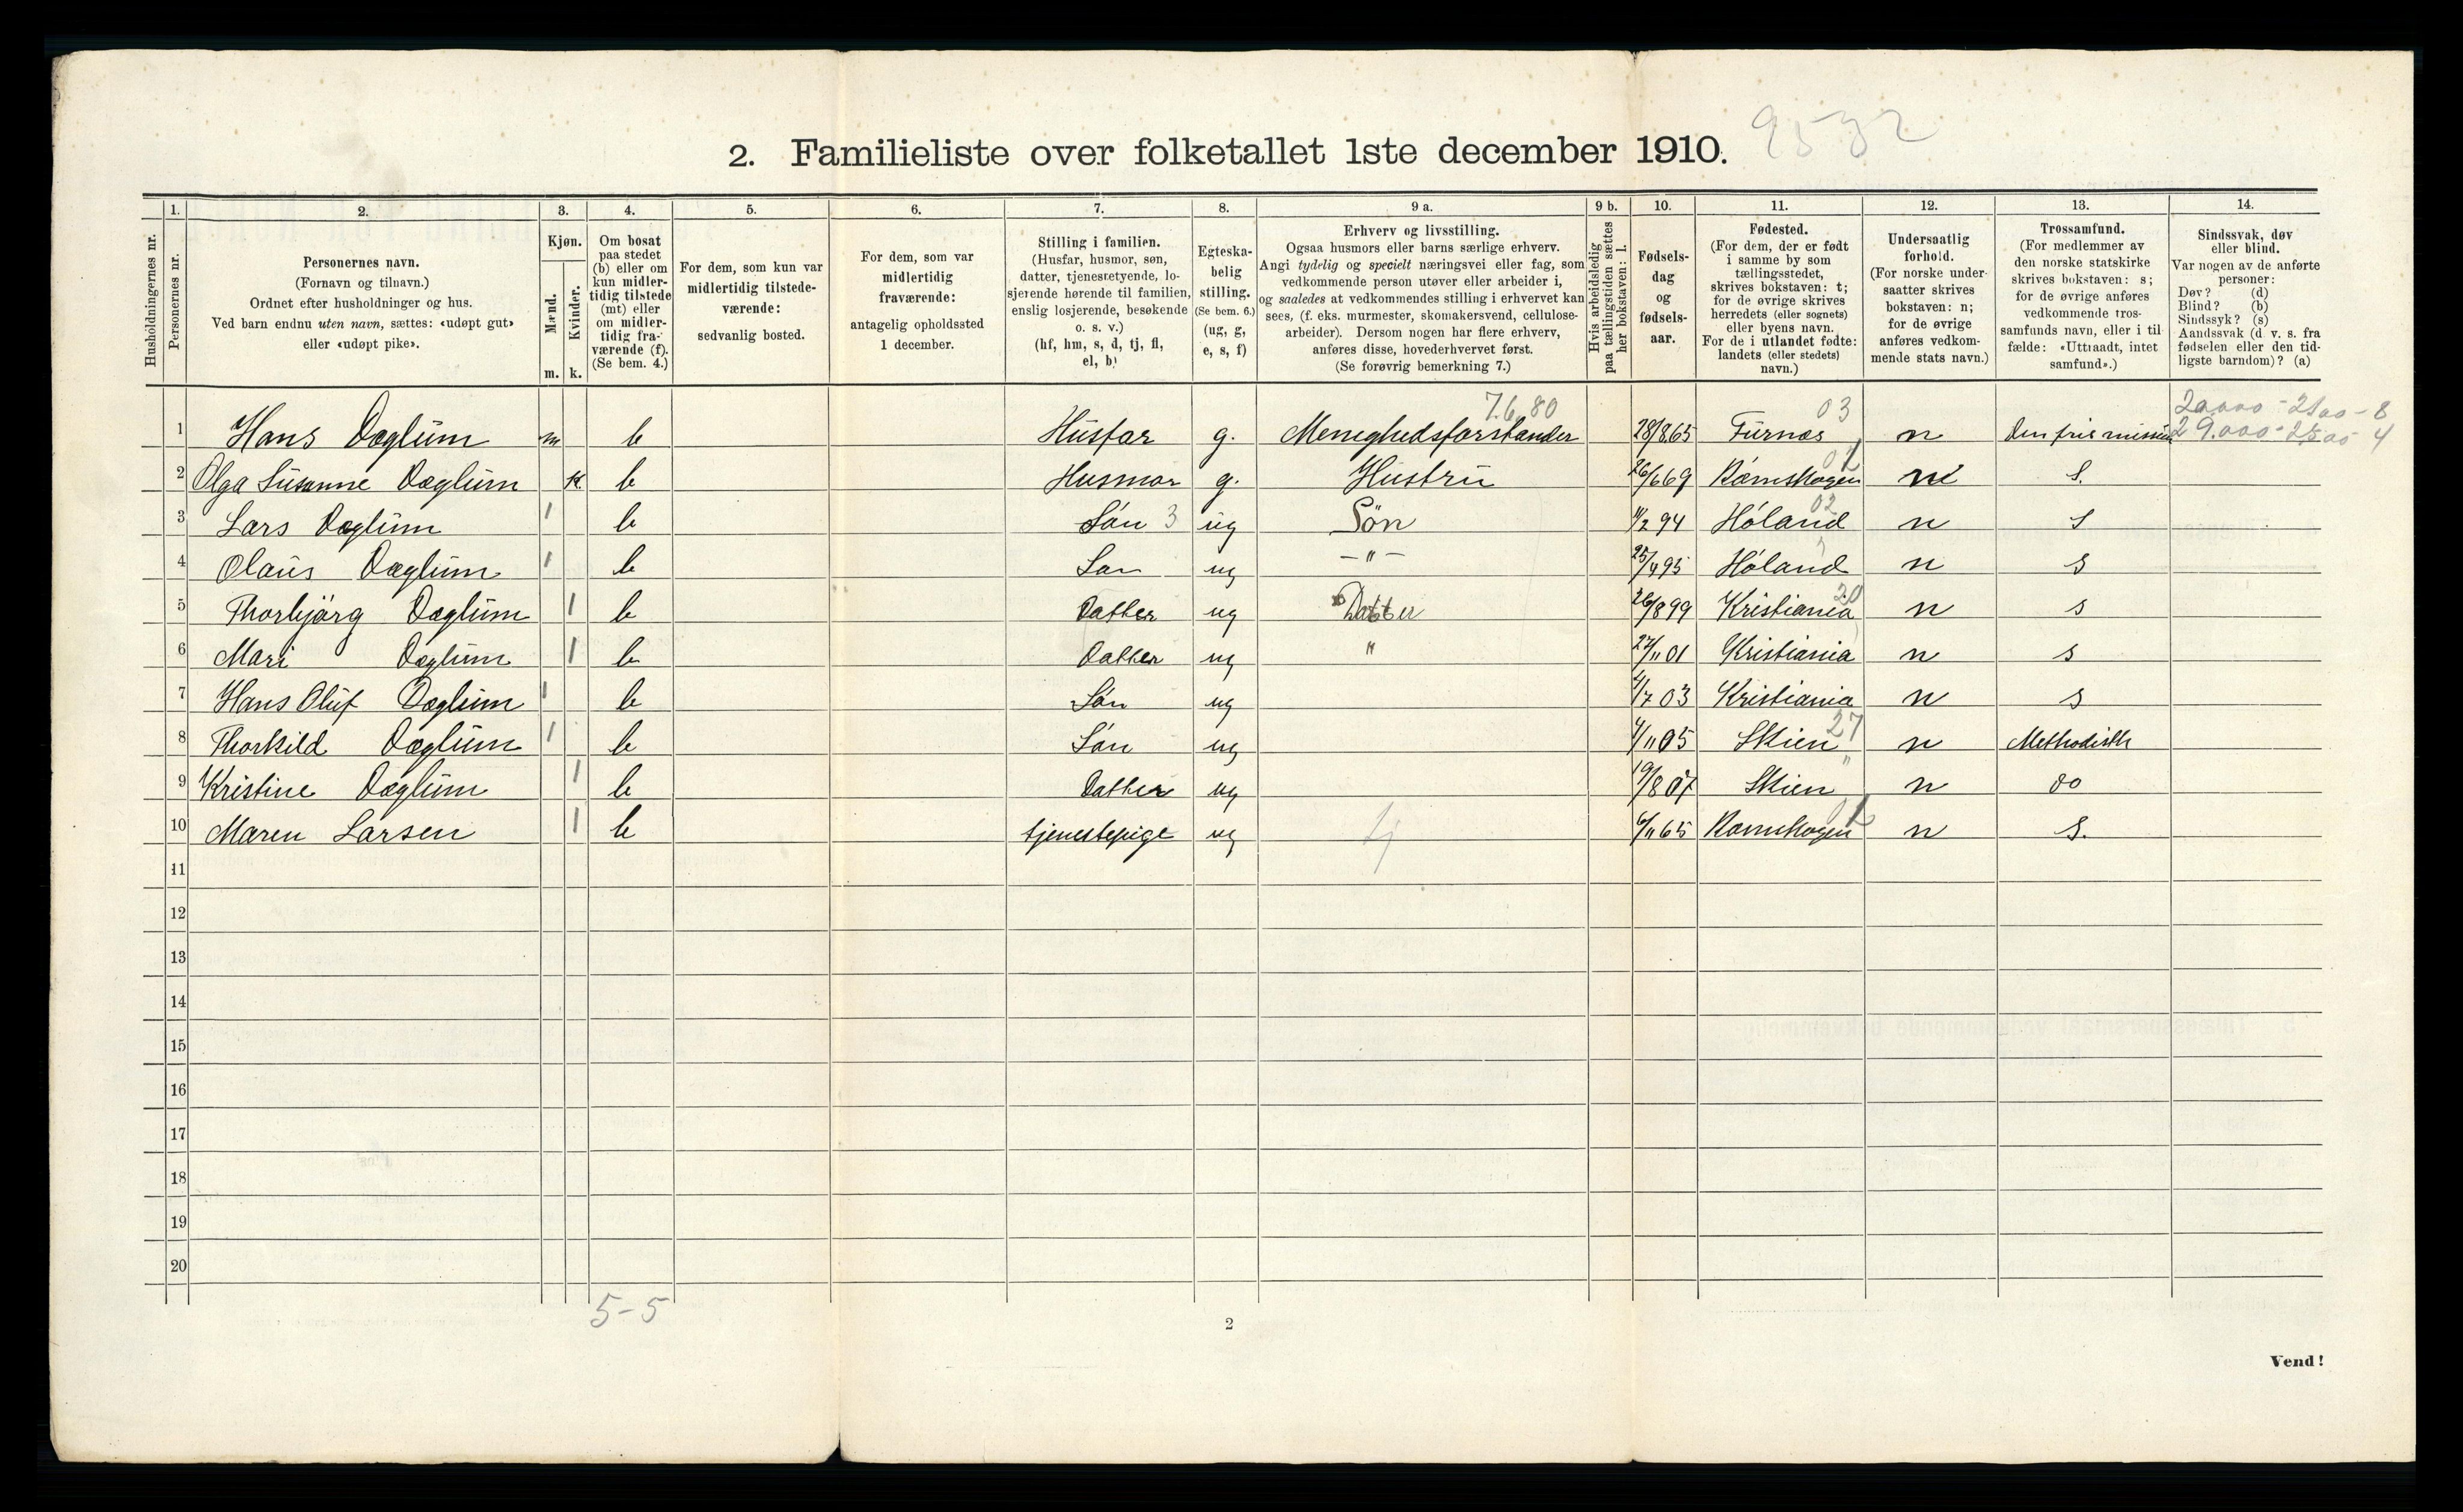 2. Familieliste over folketallet 1ste december 1910.
9532
Husholdningernes nr.
1. Personernes nr.
2. Personernes navn.
(Fornavn og tilnavn.)
Ordnet efter husholdninger og hus.
Ved barn endnu uten navn, sættes: «udøpt gut»
eller «udøpt pike».
3. Kjøn.
Mænd. Kvinder.
m. k.
4. Om bosat
paa stedet
(b) eller om
kun midler-
tidig tilstede
(mt) eller
om midler-
tidig fra-
værende (f).
(Se bem. 4.)
5. For dem, som kun var
midlertidig tilstede-
værende:
sedvanlig bosted.
6. For dem, som var
midlertidig
fraværende:
antagelig opholdssted
1 december.
7. Stilling i familien.
(Husfar, husmor, søn,
datter, tjenestetyende, lo-
sjerende hørende til familien,
enslig losjerende, besøkende
o. s. v.)
(hf, hm, s, d, tj, fl,
el, b)
8. Egteska-
belig
stilling.
(Se bem. 6.)
(ug, g,
e, s, f)
9 a. Erhverv og livsstilling.
Ogsaa husmors eller barns særlige erhverv.
Angi tydelig og specielt næringsvei eller fag, som
vedkommende person utøver eller arbeider i,
og saaledes at vedkommendes stilling i erhvervet kan
sees, (f. eks. murmester, skomakersvend, cellulose-
arbeider). Dersom nogen har flere erhverv,
anføres disse, hovederhvervet først.
(Se forøvrig bemerkning 7.)
9 b. Hvis arbeidsledig
paa tællingstiden sættes
her bokstaven: l.
10. Fødsels-
dag
og
fødsels-
aar.
11. Fødested.
(For dem, der er født
i samme by som
tællingsstedet,
skrives bokstaven: t;
for de øvrige skrives
herredets (eller sognets)
eller byens navn.
For de i utlandet fødte:
landets (eller stedets)
navn.)
12. Undersaatlig
forhold.
(For norske under-
saatter skrives
bokstaven: n;
for de øvrige
anføres vedkom-
mende stats navn.)
13. Trossamfund.
(For medlemmer av
den norske statskirke
skrives bokstaven: s;
for de øvrige anføres
vedkommende tros-
samfunds navn, eller i til-
fælde: «Uttraadt, intet
samfund».)
14. Sindssvak, døv
eller blind.
Var nogen av de anførte
personer:
Døv? (d)
Blind? (b)
Sindssyk? (s)
Aandssvak (d. v. s. fra
fødselen eller den tid-
ligste barndom)? (a)
7.6.80 03 20000 - 2100 - 8
1 Hans Dæglum m b Husfar g. Menighedsforstander 28/8 65 Furnes n Den frie mission 29.000 - 2500 4
2 Olga Susanne Dæglum k b Husmor g. Hustru 26/6 69 Rømskogen 01 n s.
3 Lars Dæglum 1 b Søn 3 ug Søn 11/2 94 Høland 02 n s
4 Olaus Dæglum 1 b Søn ug - " - 25/4 95 Høland n s
5 Thorbjörg Dæglum 1 b Datter ug Datter 26/8 99 Kristiania 20 n s
6 Mari Dæglum 1 b Datter ug " 27/11 01 Kristiania n s
7 Hans Oluf Dæglum 1 b Søn ug 4/7 03 Kristiania n s
8 Thorkild Dæglum 1 b Søn ug 4/11 05 Skien 27 n Methodisth
9 Kristine Dæglum 1 b Datter ug 19/8 07 Skien " n do
10 Maren Larsen 1 b tjenestepige ug tj 6/11 65 Rømskogen 01 n s.
11
12
13
14
15
16
17
18
19
20
5-5
2
Vend!